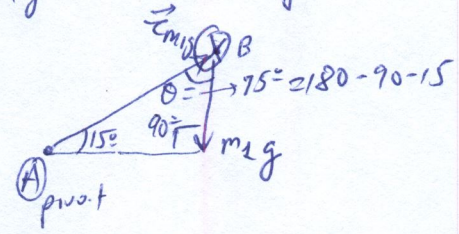 τ⃗m₁g B
θ = → 75° = 180 - 90 - 15
15° 90°
m₁g
A
pivot